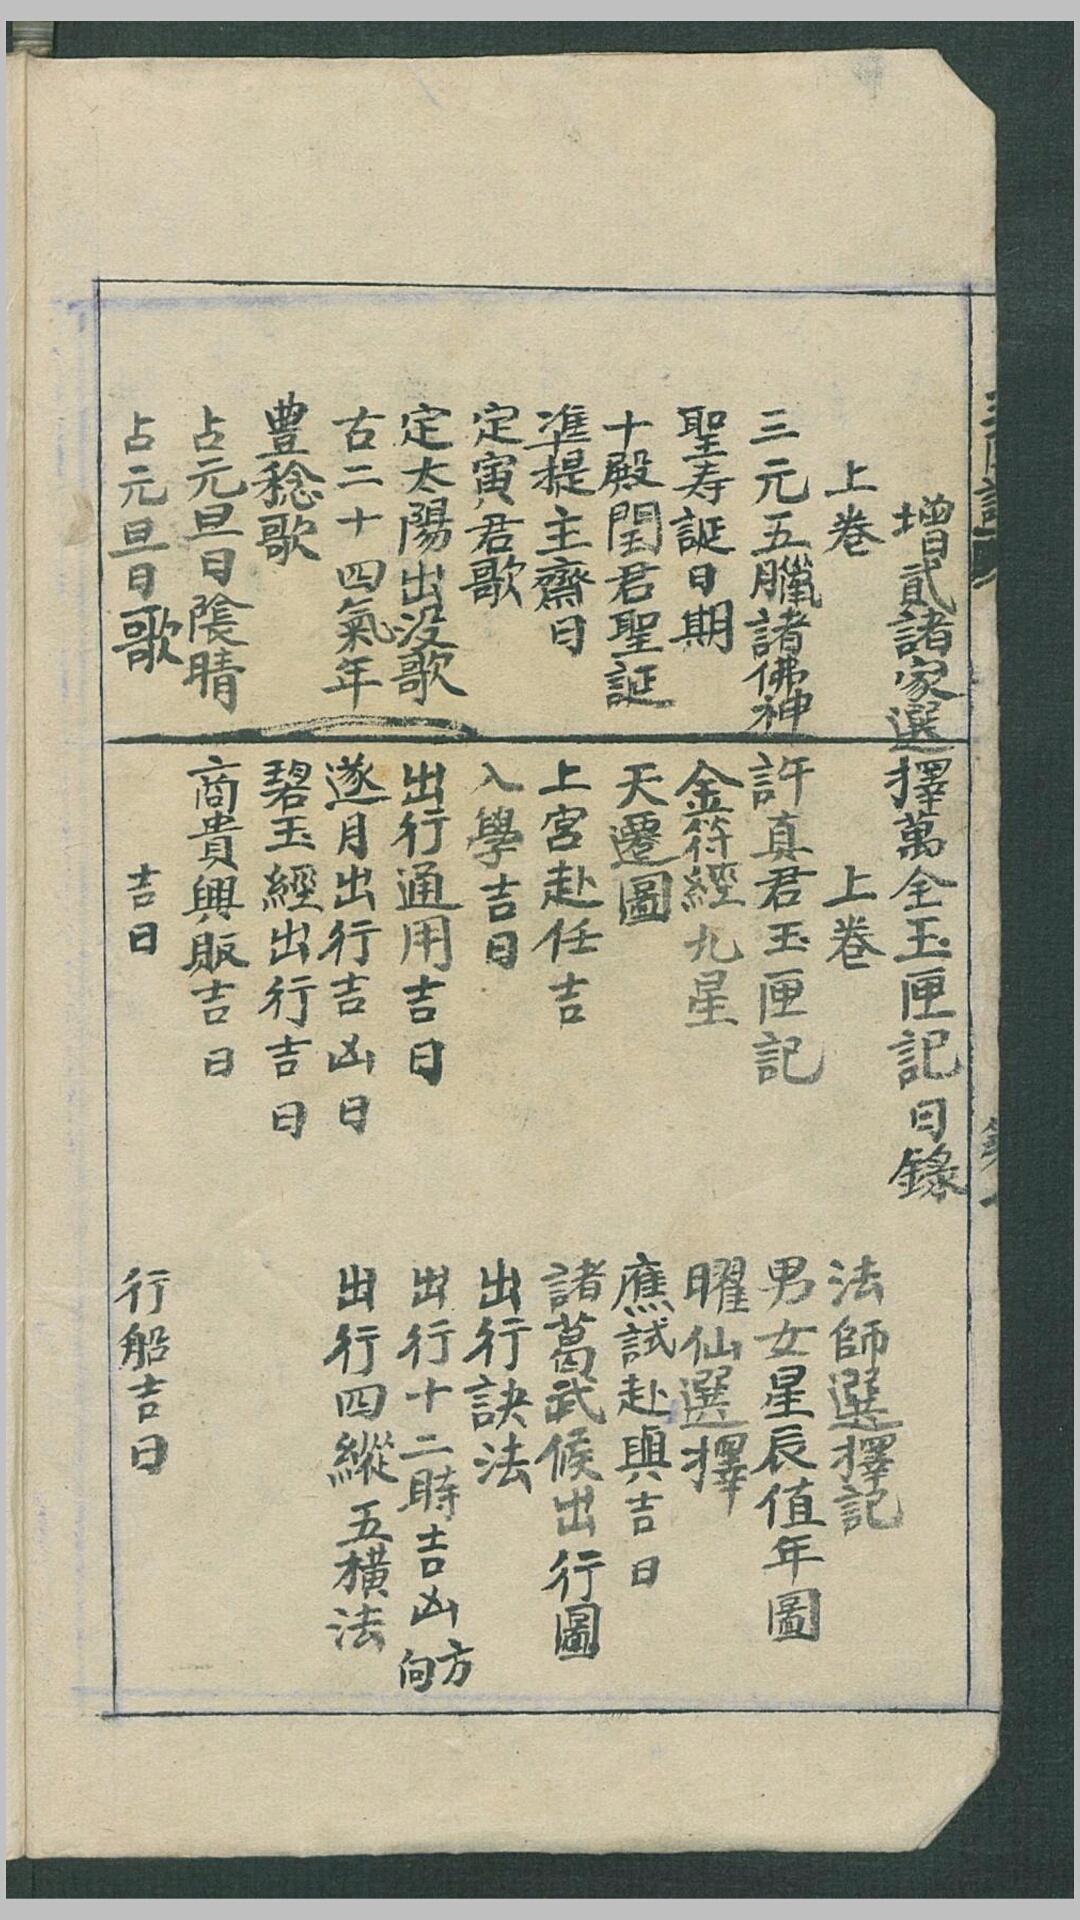 增貳諸家選擇萬全玉匣記目錄
上卷
三元五臘諸佛神
聖寿誕日期
十殿閏君聖誕
準提主齋日
定寅君歌
定太陽出没歌
古二十四氣年
豊稔歌
占元旦日陰晴
占元旦日歌
上卷
許真君玉匣記
金符經九星
天遷圖
上宮赴任吉
入學吉日
出行通用吉日
遂月出行吉凶日
碧玉經出行吉日
商貴興販吉日
吉日
法師選擇記
男女星辰值年圖
曜仙選擇
應試赴與吉日
諸葛武候出行圖
出行訣法
出行十二時吉凶方向
出行四縱五橫法
行船吉日